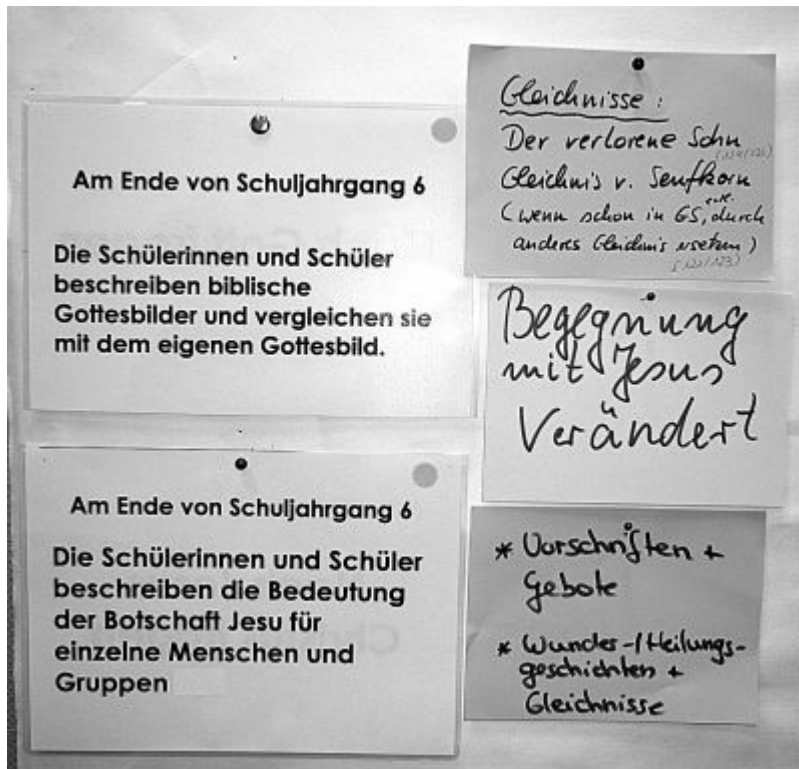 Am Ende von Schuljahrgang 6
Die Schülerinnen und Schüler
beschreiben biblische
Gottesbilder und vergleichen sie
mit dem eigenen Gottesbild.
Am Ende von Schuljahrgang 6
Die Schülerinnen und Schüler
beschreiben die Bedeutung
der Botschaft Jesu für
einzelne Menschen und
Gruppen
Gleichnisse:
Der verlorene Sohn
Gleichnis v. Senfkorn
(wenn schon in GS, durch
anderes Gleichnis ersetzen)
(122/123)
Begegnung
mit Jesus
Verändert
* Vorschriften +
Gebote
* Wunder-/Heilungs-
geschichten +
Gleichnisse